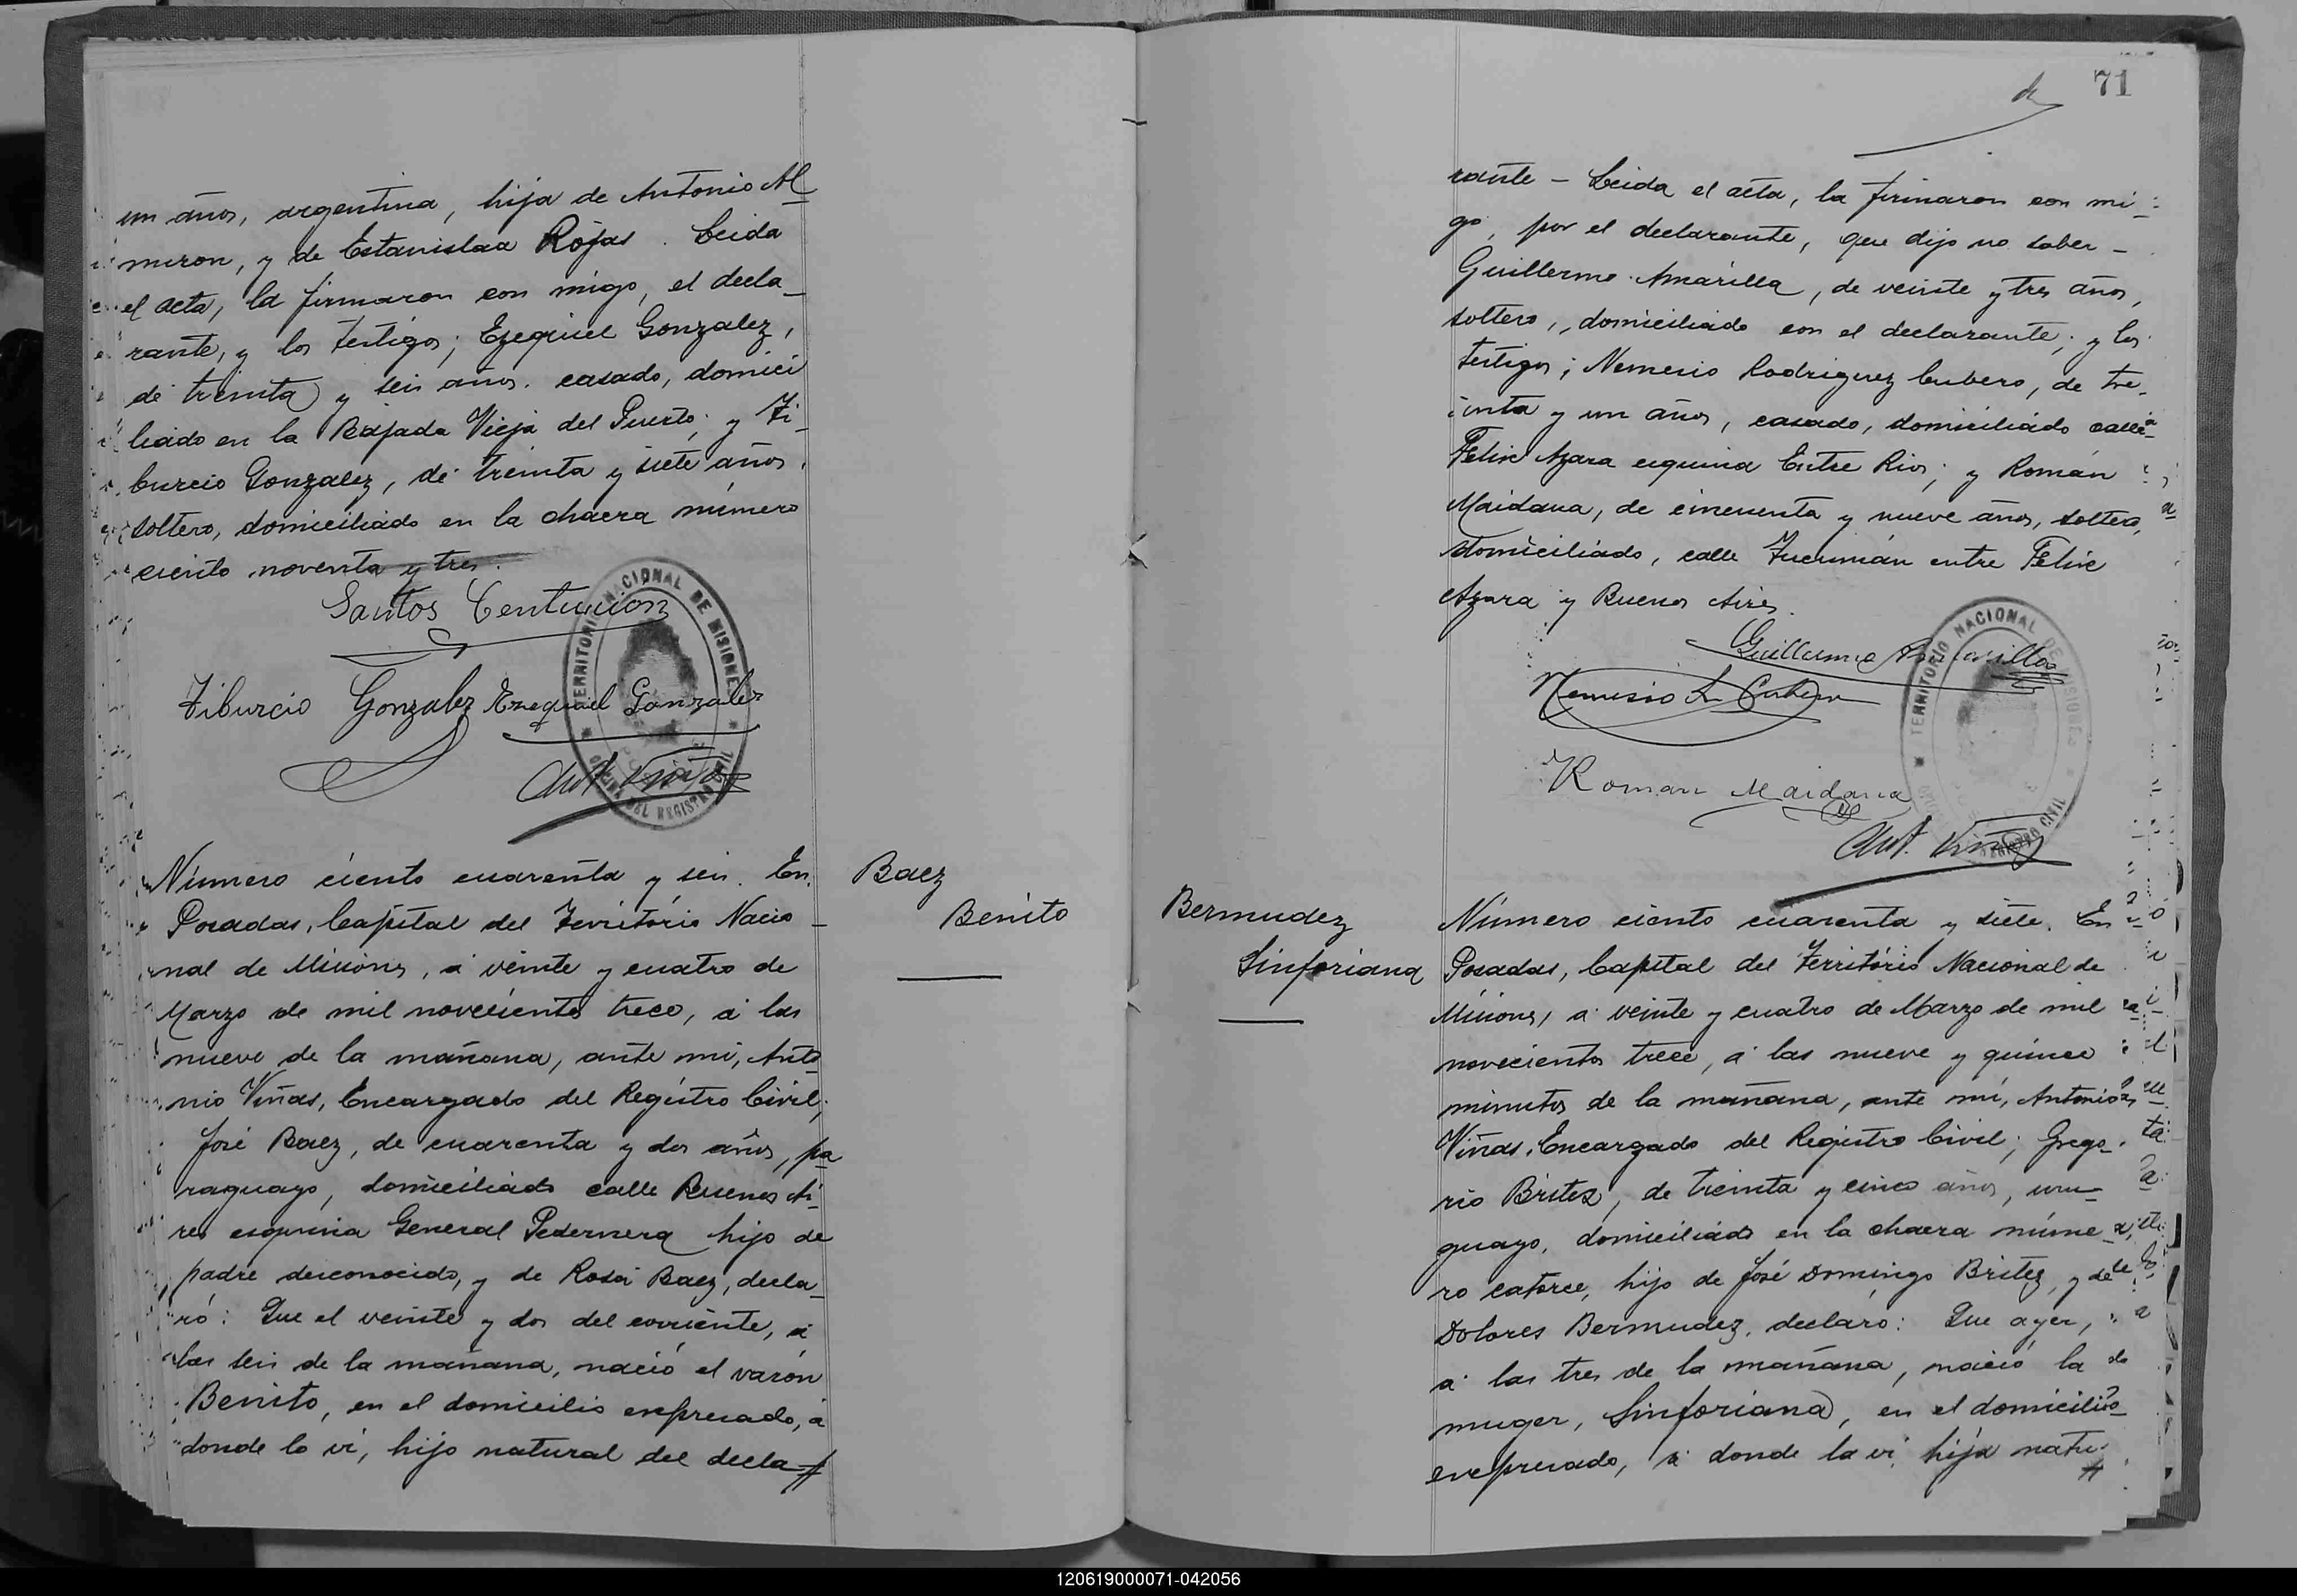 un años, argentina, hija de Antonio Al
miron, y de Estanislaa Rojas. Leida
el acta, la firmaron con migo, el decla_
rante, y los testigos; Ezequiel Gonzalez,
de treinta y seis años. casado, domici
liado en la Bajada Vieja del Puerto; y Ti_
burcio Gonzalez, de treinta y siete años,
soltero, domiciliado en la chacra número
ciento noventa y tres.
Santos Centurion
TERRITORIO NACIONAL DE MISIONES
Tiburcio Gonzalez Ezequiel Gonzalez
Ant. Viñas
OFICINA DEL REGISTRO CIVIL
Número ciento cuarenta y seis. En
Posadas, Capital del Territorio Nacio_
nal de Misiones, á veinte y cuatro de
Marzo de mil novecientos trece, á las
nueve de la mañana, ante mi, Anto
nio Viñas, Encargado del Registro Civil;
José Baez, de cuarenta y dos años, pa
raguayo, domiciliado calle Buenos Ai_
res esquina General Pedernera hijo de
padre desconocido, y de Rosa Baez, decla_
ró: Que el veinte y dos del corriente, á
las seis de la mañana, nació el varón
Benito, en el domicilio expresado, á
donde lo vi, hijo natural del decla_
Baez
Benito
71
rante – Leida el acta, la firmaron con mi_
go, por el declarante, que dijo no saber –
Guillermo Amarilla, de veinte y tres años,
soltero, domiciliado con el declarante; y los
testigos; Nemesio Rodriguez Cubero, de tre_
inta y un años, casado, domiciliado calle
Felix Azara esquina Entre Rios; y Román
Maidana, de cincuenta y nueve años, soltero,
domiciliado, calle Tucumán entre Felix
Azara y Buenos Aires.
Guillermo Amarilla
TERRITORIO NACIONAL DE MISIONES
Nemesio R Cubero
Roman Maidana
Ant. Viñas
REGISTRO CIVIL
Bermudez
Sinforiana
Número ciento cuarenta y siete. En
Posadas, Capital del Territorio Nacional de
Misiones, á veinte y cuatro de Marzo de mil
novecientos trece, á las nueve y quince
minutos de la mañana, ante mí, Antonio
Viñas, Encargado del Registro Civil; Grego_
rio Britez, de treinta y cinco años, uru_
guayo, domiciliado en la chacra núme_
ro catorce, hijo de José Domingo Britez, y de
Dolores Bermudez, declaró: Que ayer,
á las tres de la mañana, nació la
muger, Sinforiana, en el domicilio
expresado, á donde la vi, hija natu_
120619000071-042056